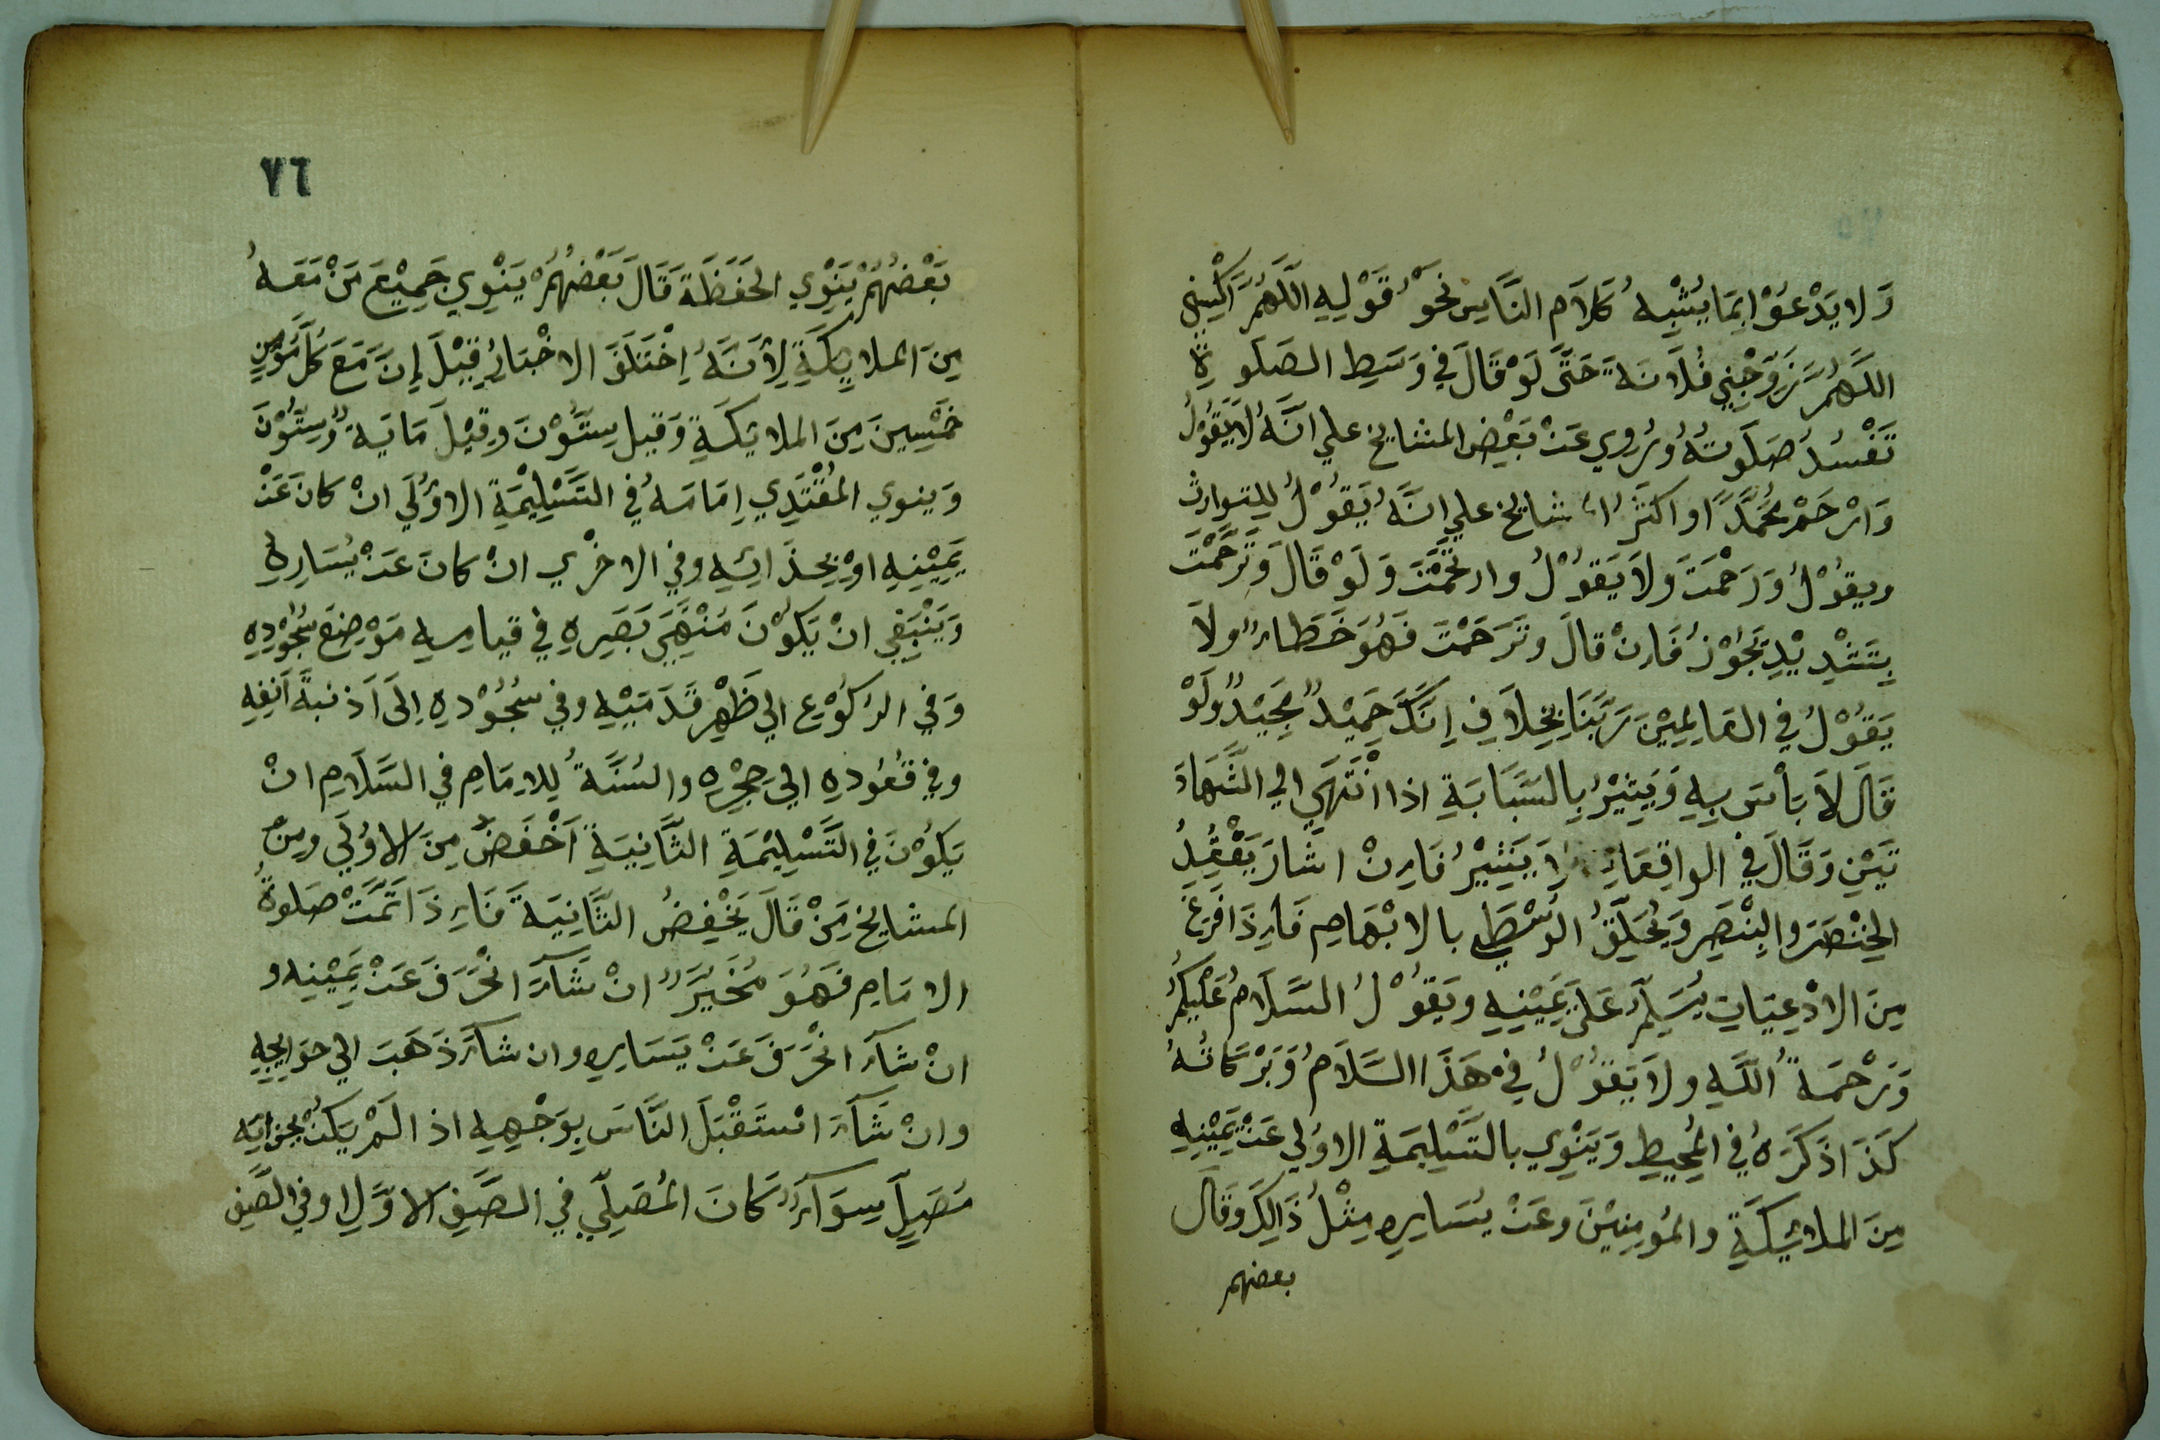 وَلا يَدْعُوْا بِمَا يُشْبِهُ كَلَامَ النَّاسِ نَحْوُ قَوْلِهِ اللَّهُمَّ اكْسِنِي
اللَّهُمَّ زَوِّجْنِي فُلَانَةَ حَتَّى لَوْ قَالَ فِي وَسَطِ الصَلَوةِ
تَفْسُدُ صَلَوتُهُ وَرُوِي عَنْ بَعْضِ المشايخ علي انَّهُ لَا يَقُوْلُ
وَارْحَمْ مُحَمَّدًا واكثَرُ شايخ علي انَّهُ يَقُوْلُ للتوارث
ويقُوْلُ وَرَحْمَتَ وَلَا يَقُوْلُ وارتحمْتَ وَلَوْ قَالَ وَتَرَحَّمْتَ
بِتَشْدِيْدٍ يَجُوْزُ فَاِنْ قالَ وتَرَحَمْتَ فَهُوَ خَطَاءٌ ولَا
يَقُوْلُ فِي العَالِمِيْنَ رَبَّنَا بِخِلَافِ اِنَّكَ حَمِيْدٌ مَجِيْدٌ وَلَوْ
قَالَ لَا بَأْسَ بِهِ وَيُشِيْرُ بِالسَّبَابَةِ اذا انْتَهَي الي الشَّهَادَ
تَيْنِ وَقَالَ فِي الواقِعَاتِ لَا يُشِيْرُ فَاِنْ اشَارَ يَعْقِدُ
الخِنْصَرَ والبِنْصَرَ وَيُحَلِّقُ الوُسْطَي بالابْهَامِ فَاِذَا فَرَغَ
مِنَ الادْعِيَاتِ يُسَلِّمُ عَلَى يَمِيْنِهِ ويَقُوْلُ السَّلَامُ عَلَيْكُمْ
وَرَحْمَةُ اللَّهِ ولا يَقُوْلُ فِي هَذَا السَّلَامُ وَبَرَكَاتُهُ
كَذَا ذَكَرَهُ فِي المُحِيْطِ وَيَنْوِي بالتَّسْلِيمَةِ الاوُلي عَنْ يَمِيْنِهِ
مِنَ الملائِكَةِ والمُؤمِنِيْنَ وعَنْ يَسَارِهِ مِثْلُ ذَالِكَ وَقَالَ
بعضهم
٧٦
بَعْضُهُمْ يَنْوِي الحَفَظَةَ قَالَ بَعْضُهُمْ يَنْوِي جَمِيْعَ مَنْ مَعَهُ
مِنَ الملايِكَةِ لِأَنَّهُ اِخْتَلَفَ الاخْبَارُ قِيْلَ إِنَّ مَعَ كُلِّ مُؤْمِنٍ
خَمْسِينَ مِنَ الملائِكَةِ وَقِيل سِتُّوْنَ وقِيْلَ مَايَةٌ وَسِتُّوْنَ
وَينوي المُقْتَدِي اِمَامَهُ فِي التَّسْلِيْمَةِ الاوُلَي انْ كانَ عَنْ
يَمِيْنِهِ اوْ بِحِذَائِهِ وفي الاخرْي انْ كانَ عَنْ يُسَارِهِ
وَيَنْبَغِي انْ يَكُوْنَ مُنْتَهَي بَصَرِهِ فِي قِيامِهِ مَوْضِعَ سُجُوْدِهِ
وَفي الرُكُوْعِ الي ظَهْرِ قَدَمَيْهِ وفي سُجُوْدِهِ اِلَى اَذنبةِ اَنفِهِ
وفي قُعُودِهِ الي حِجْرِهِ والسُنَّةُ لِلاِمَامِ في السَّلَامِ انْ
يَكُوْنَ فِي التَّسْلِيْمَةِ الثَّانِيَةِ اَخْفَضُ مِنَ الاوُلَي ومِنَ
المشايخ مَنْ قَالَ يَخْفِضُ الثَّانِيَةَ فَاِذَا تَمَّتْ صَلوةُ
الامَامِ فَهُوَ مُخَيَّرٌ انْ شَآءَ انْحَرَفَ عَنْ يَمِيْنِهِ و
انْ شآءَ انْحَرَفَ عَنْ يَسَارِهِ وان شآءَ ذَهَبَ الي حَوَايِجِهِ
وانْ شَآءَ اسْتَقْبَلَ النَّاسَ بِوَجْهِهِ اذا لَمْ يَكُنْ بحذايه
مُصَلٍّ سِوَآءٌ كَانَ المُصَلِّي فِي الصَّفِّ الاوَّلِ او في الصَّفِ